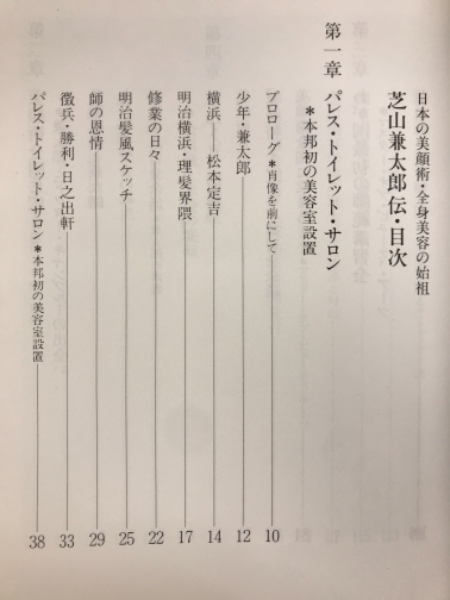 日本の美顔術・全身美容の始祖
芝山兼太郎伝・目次
第一章 パレス・トイレット・サロン
＊本邦初の美容室設置
プロローグ ＊肖像を前にして――10
少年・兼太郎――12
横浜――松本定吉――14
明治横浜・理髪界隈――17
修業の日々――22
明治髪風スケッチ――25
師の恩情――29
徴兵・勝利・日之出軒――33
パレス・トイレット・サロン ＊本邦初の美容室設置――38